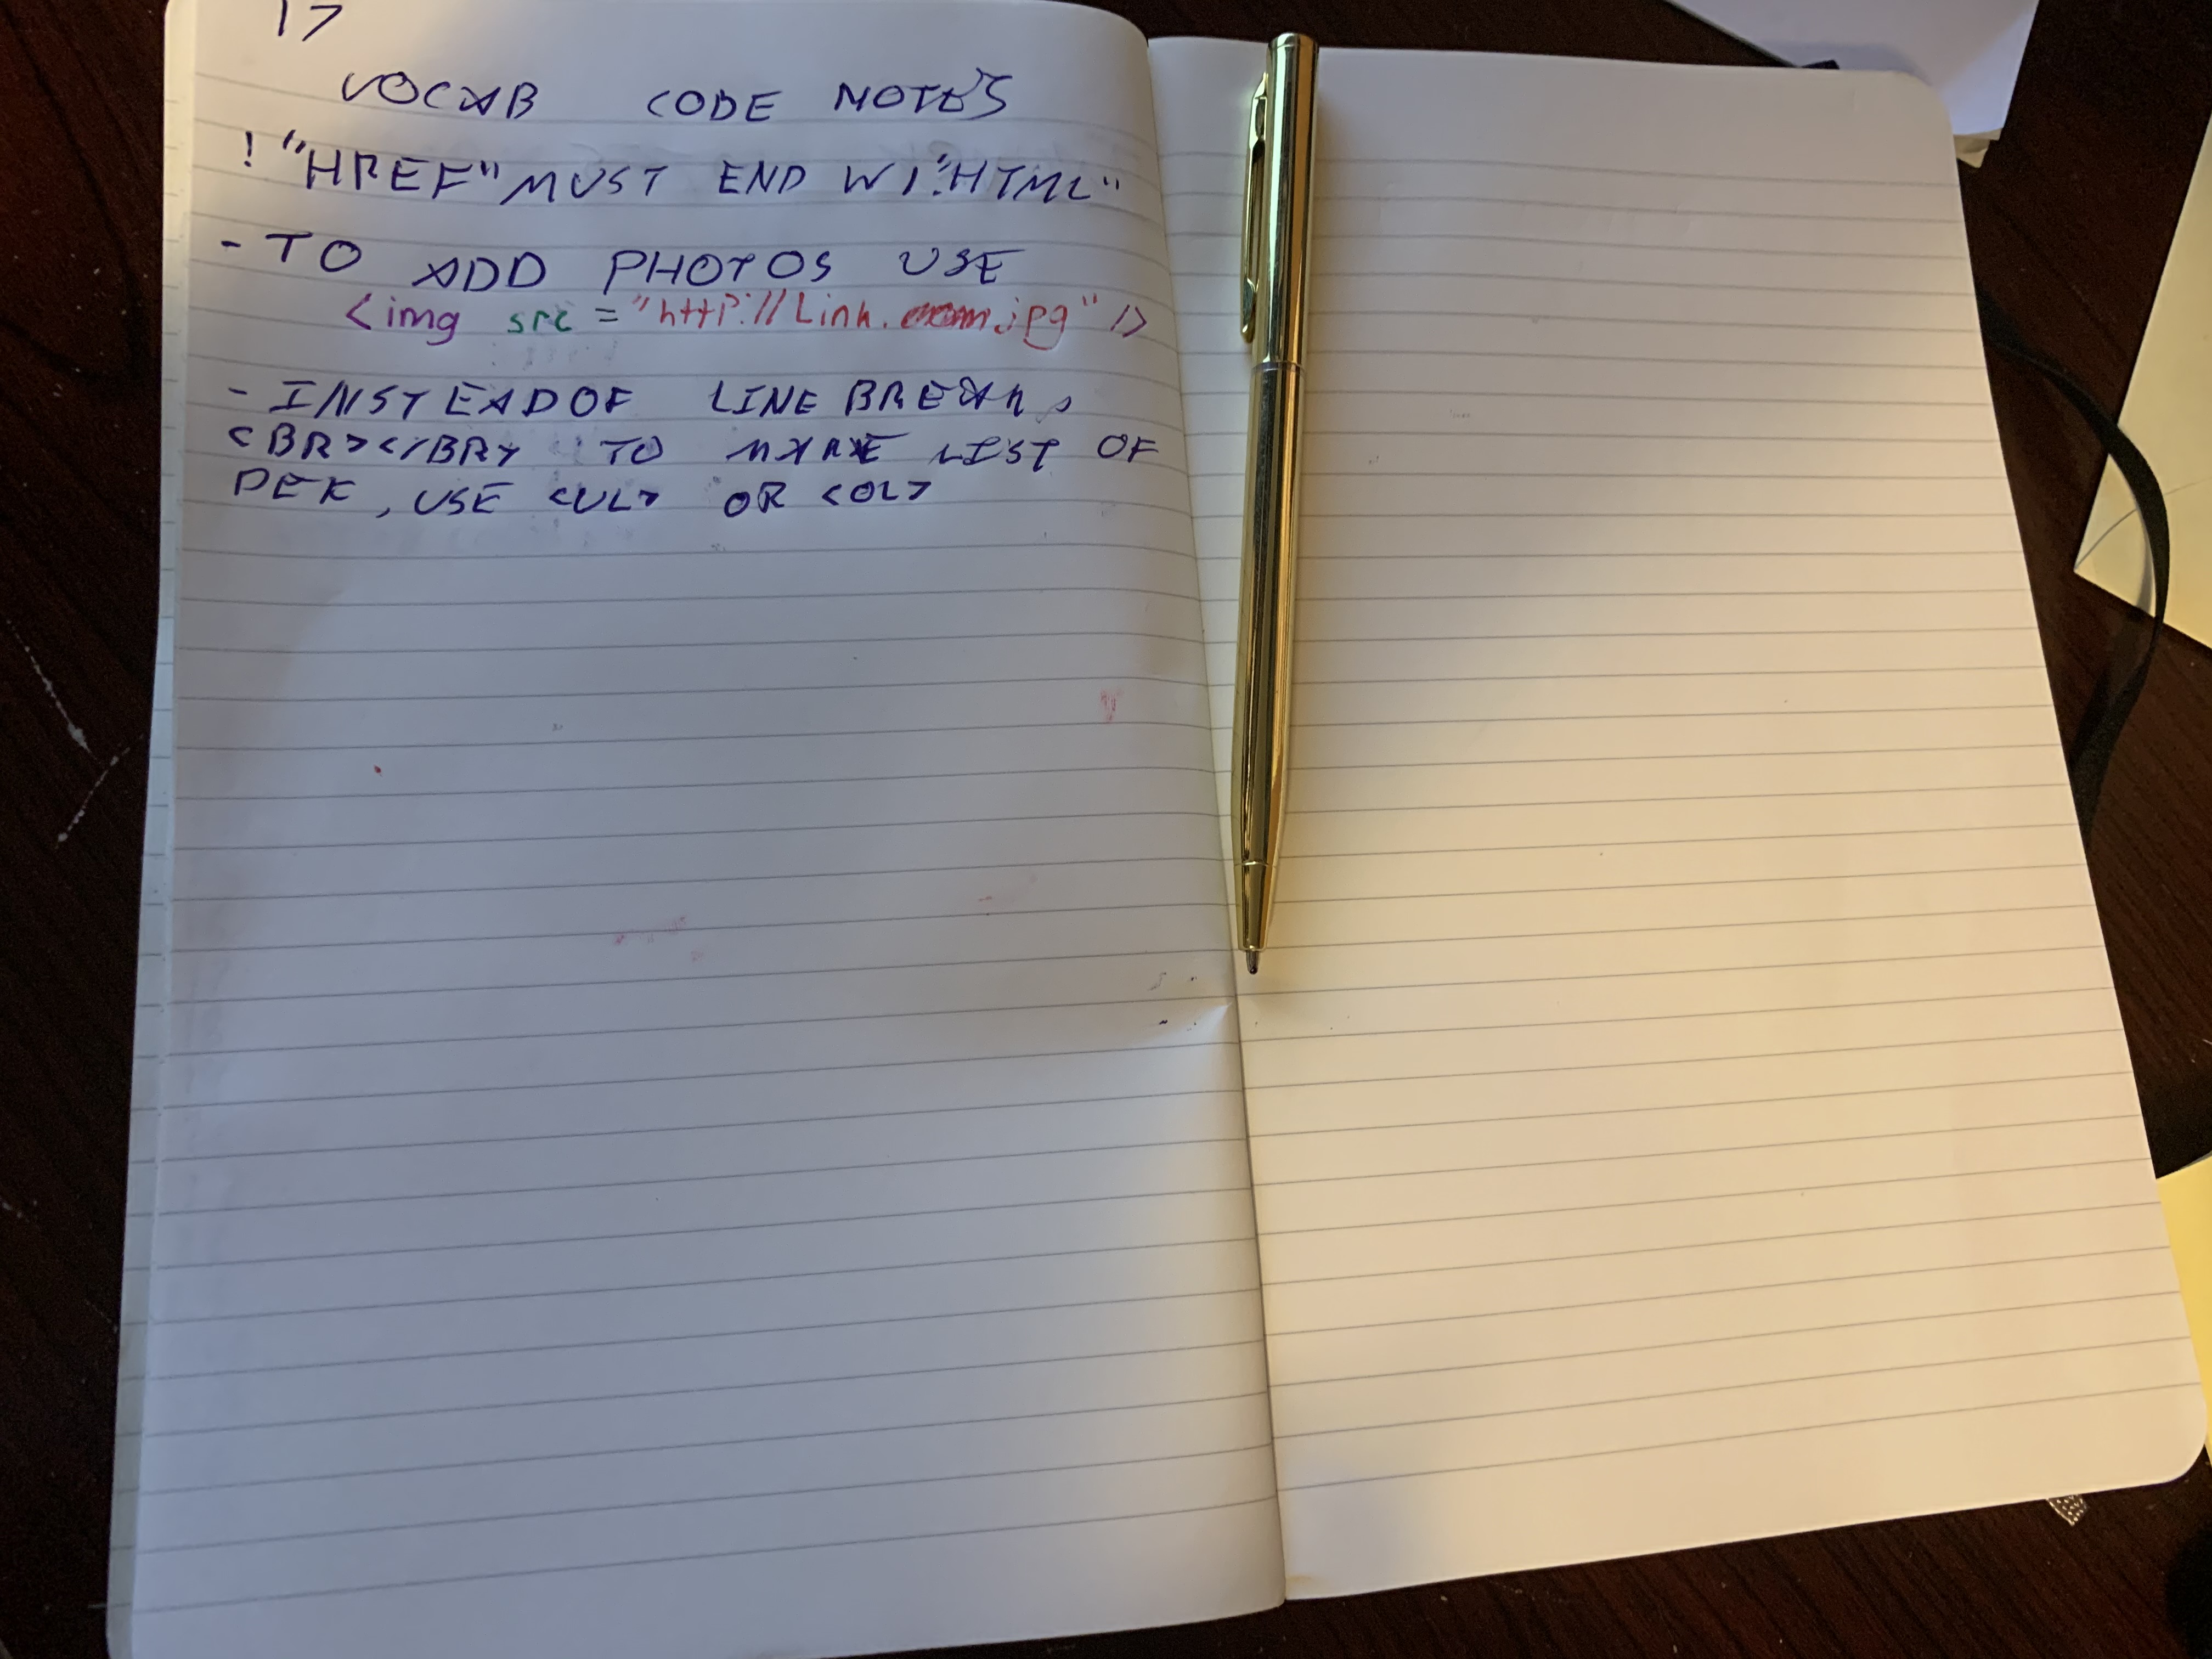 17
VOCAB CODE NOTES
! "HREF" MUST END W/ ".HTML"
- TO ADD PHOTOS USE
<img src = "http://Link.jpg" />
- INSTEAD OF LINE BREAKS
<BR></BR> TO MAKE LIST OF
DEF, USE <UL> OR <OL>